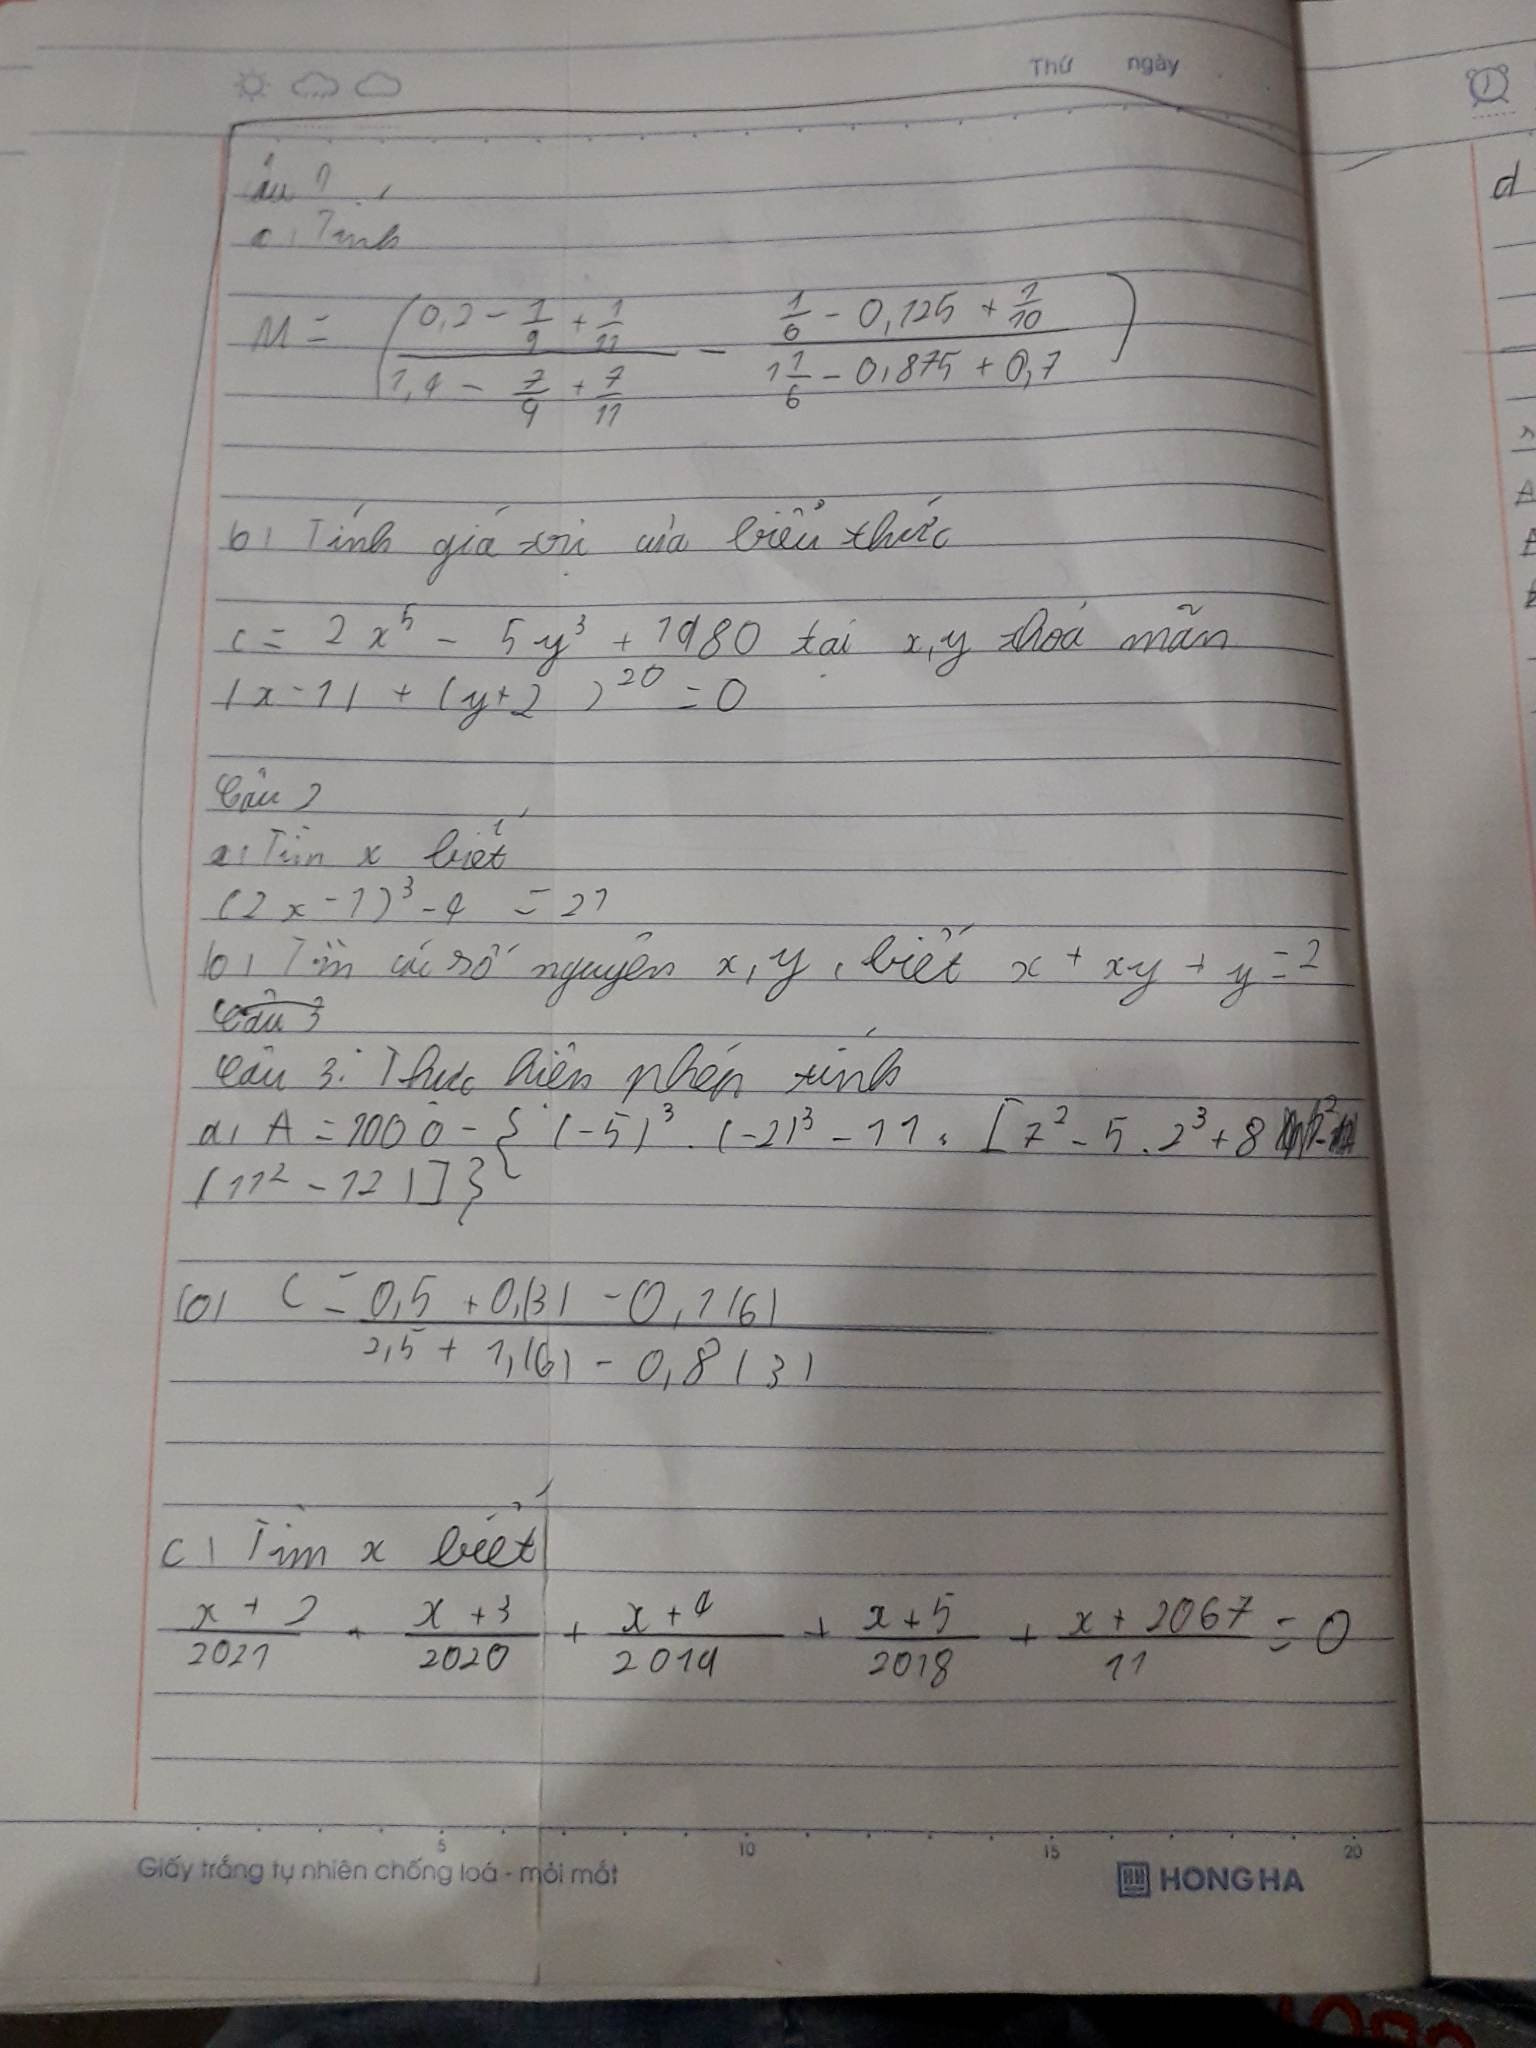 Thứ ngày
Câu 1
a, Tính
M = (0,2 - 1/9 + 1/11 / 1,4 - 7/9 + 7/11 - 1/6 - 0,125 + 1/10 / 1 1/6 - 0,875 + 0,7)
b, Tính giá trị của biểu thức
C = 2x⁵ - 5y³ + 1980 tại x,y thoả mãn
|x-1| + (y+2)²⁰ = 0
Câu 2
a, Tìm x biết
(2x-1)³ - 4 =
b, Tìm các số nguyên x,y, biết x + xy + y = 2
Câu 3
Câu 3: Thực hiện phép tính
a, A = 1000 - { (-5)³ . (-2)³ - 11 . [ 7² - 5 . 2³ + 8
(11² - 121)]}
b) C = 0,5 + 0,(3) - 0,1(6) / 2,5 + 1,(6) - 0,8(3)
c) Tìm x biết
x+2/2021 + x+3/2020 + x+4/2019 + x+5/2018 + x+2067/11 = 0
5 10 15 20
Giấy trắng tự nhiên chống loá - mỏi mắt
HONG HA
d